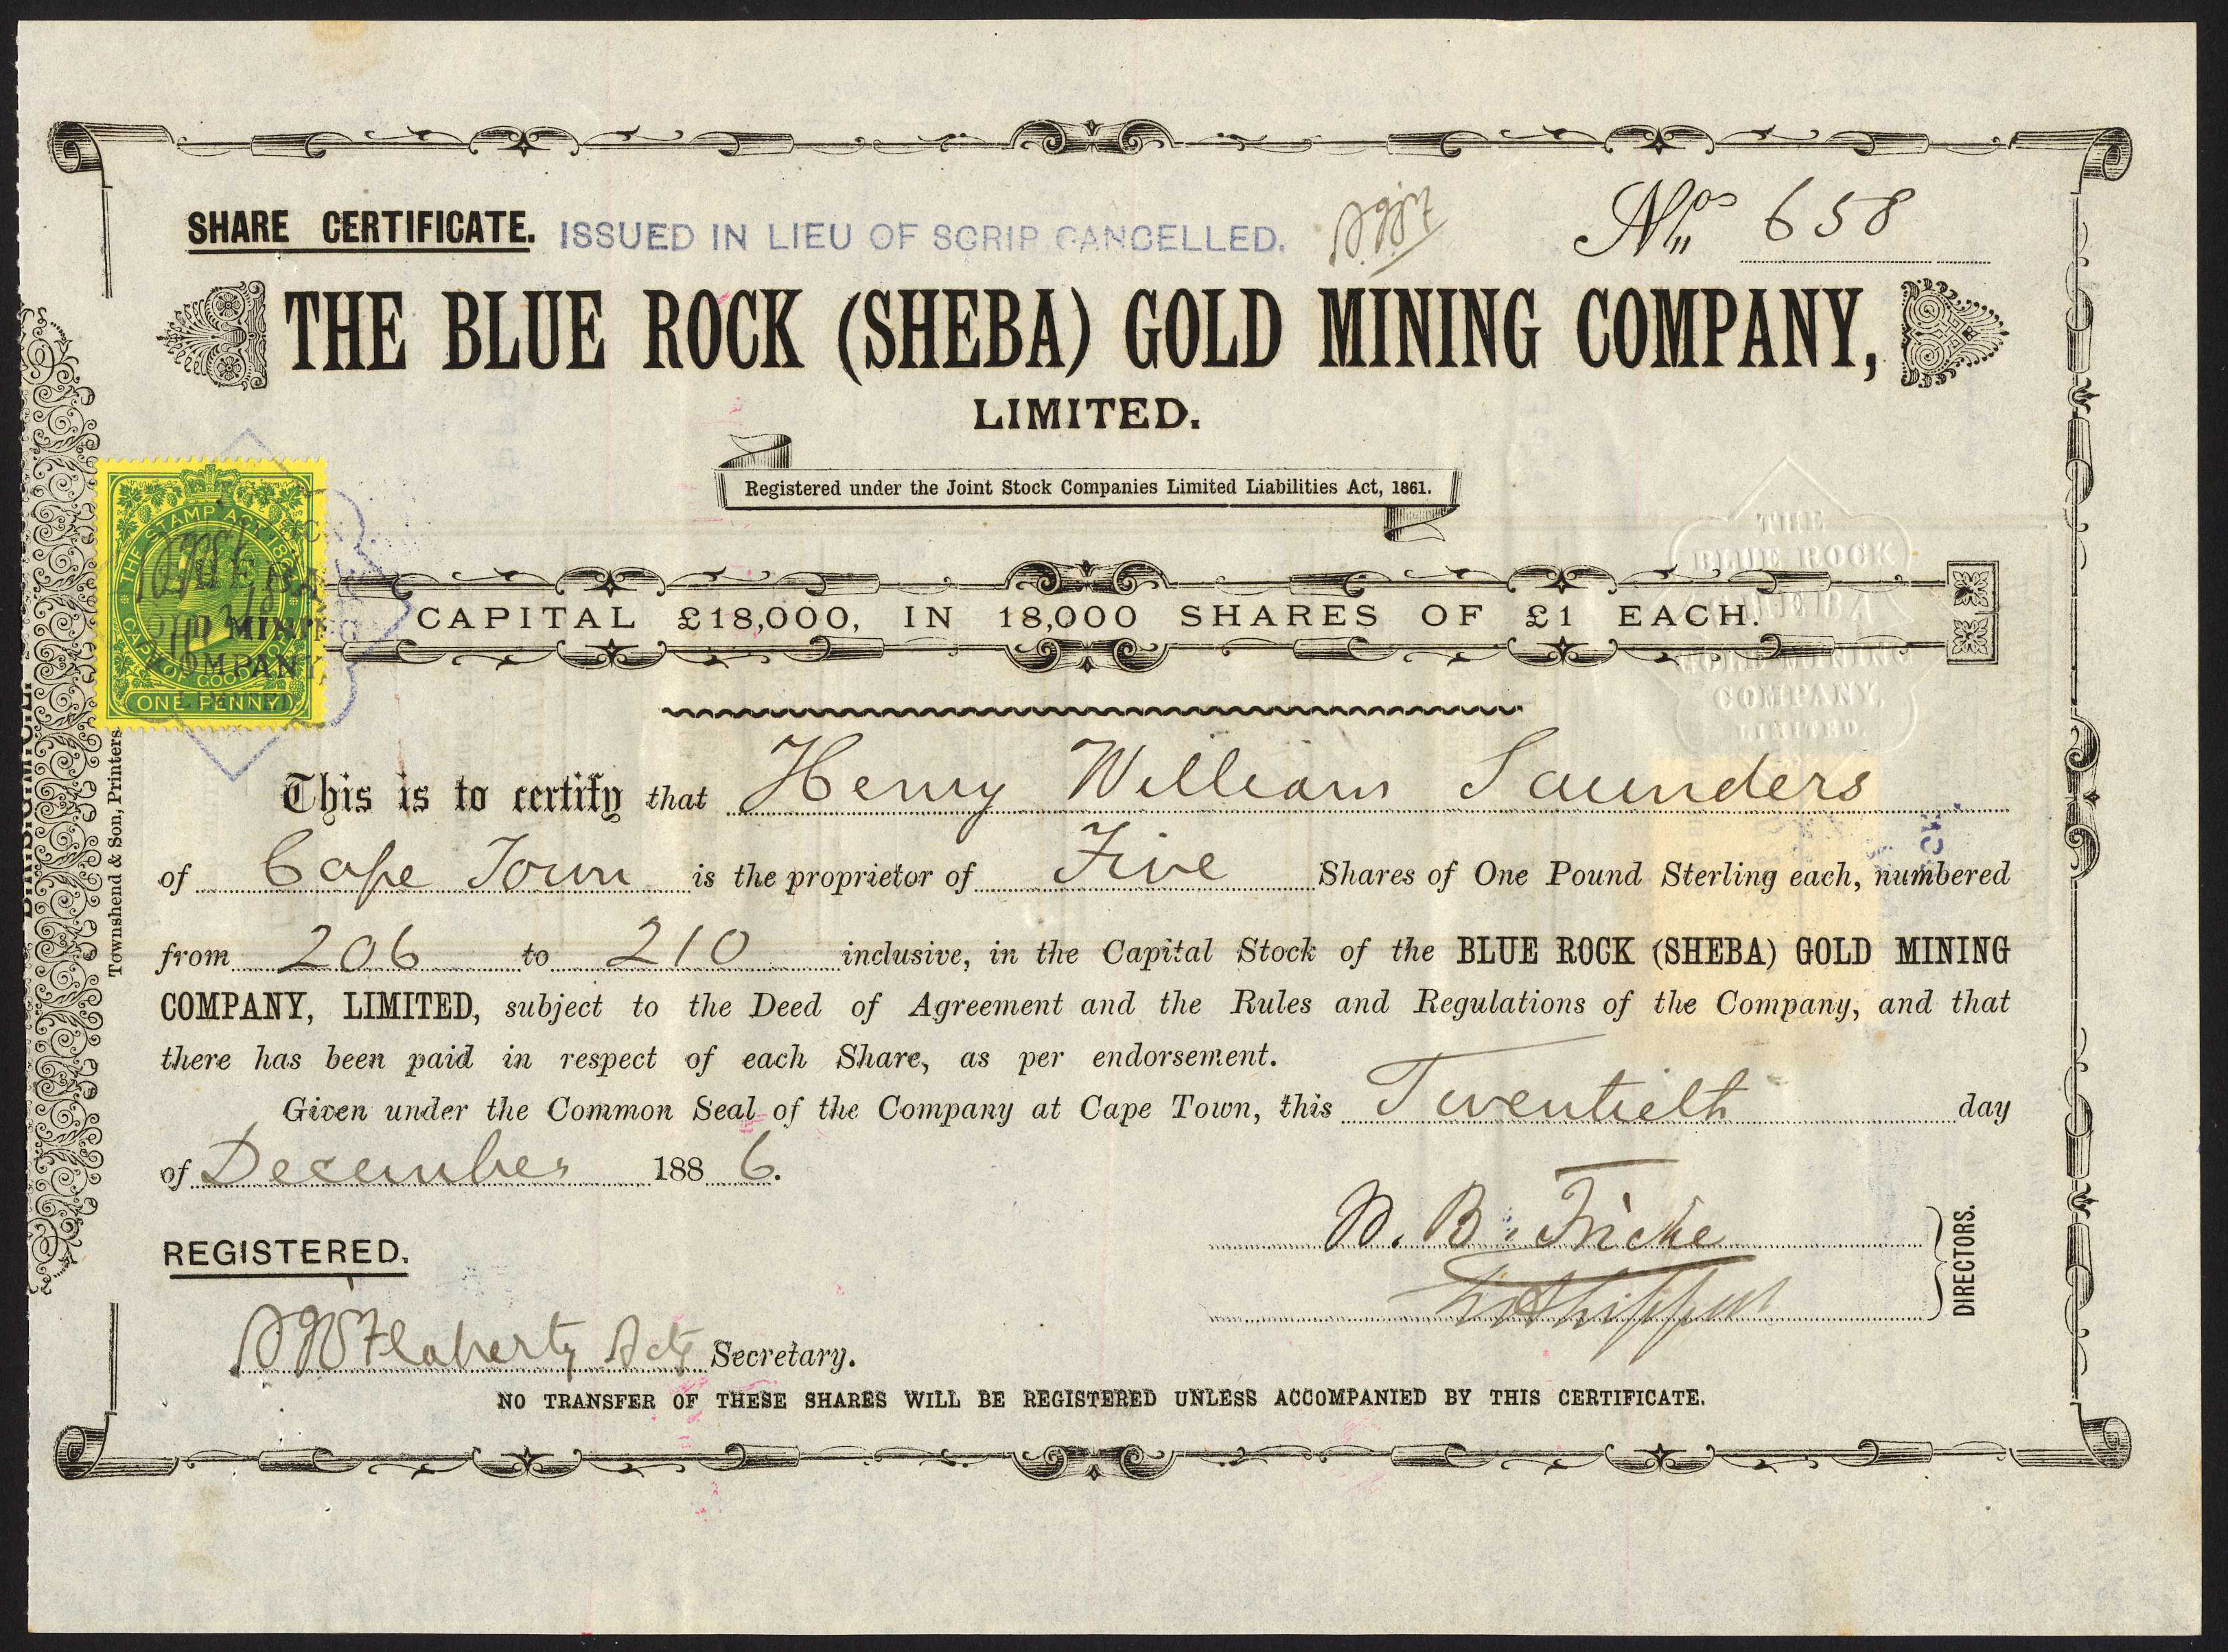 SHARE CERTIFICATE. ISSUED IN LIEU OF SCRIP CANCELLED. Nos 658
THE BLUE ROCK (SHEBA) GOLD MINING COMPANY,
LIMITED.
Registered under the Joint Stock Companies Limited Liabilities Act, 1861.
THE STAMP ACT
CAPE OF GOOD
ONE PENNY
SHEBA
GOLD MINING
COMPANY,
THE
BLUE ROCK
SHEBA
GOLD MINING
COMPANY,
LIMITED.
CAPITAL £18,000, IN 18,000 SHARES OF £1 EACH.
Townshend & Son, Printers
This is to certify that Henry William Saunders
of Cape Town is the proprietor of Five Shares of One Pound Sterling each, numbered
from 206 to 210 inclusive, in the Capital Stock of the BLUE ROCK (SHEBA) GOLD MINING
COMPANY, LIMITED, subject to the Deed of Agreement and the Rules and Regulations of the Company, and that
there has been paid in respect of each Share, as per endorsement.
Given under the Common Seal of the Company at Cape Town, this Twentieth day
of December 1886.
REGISTERED.
Fricke
DIRECTORS.
Flaherty Actg Secretary.
NO TRANSFER OF THESE SHARES WILL BE REGISTERED UNLESS ACCOMPANIED BY THIS CERTIFICATE.